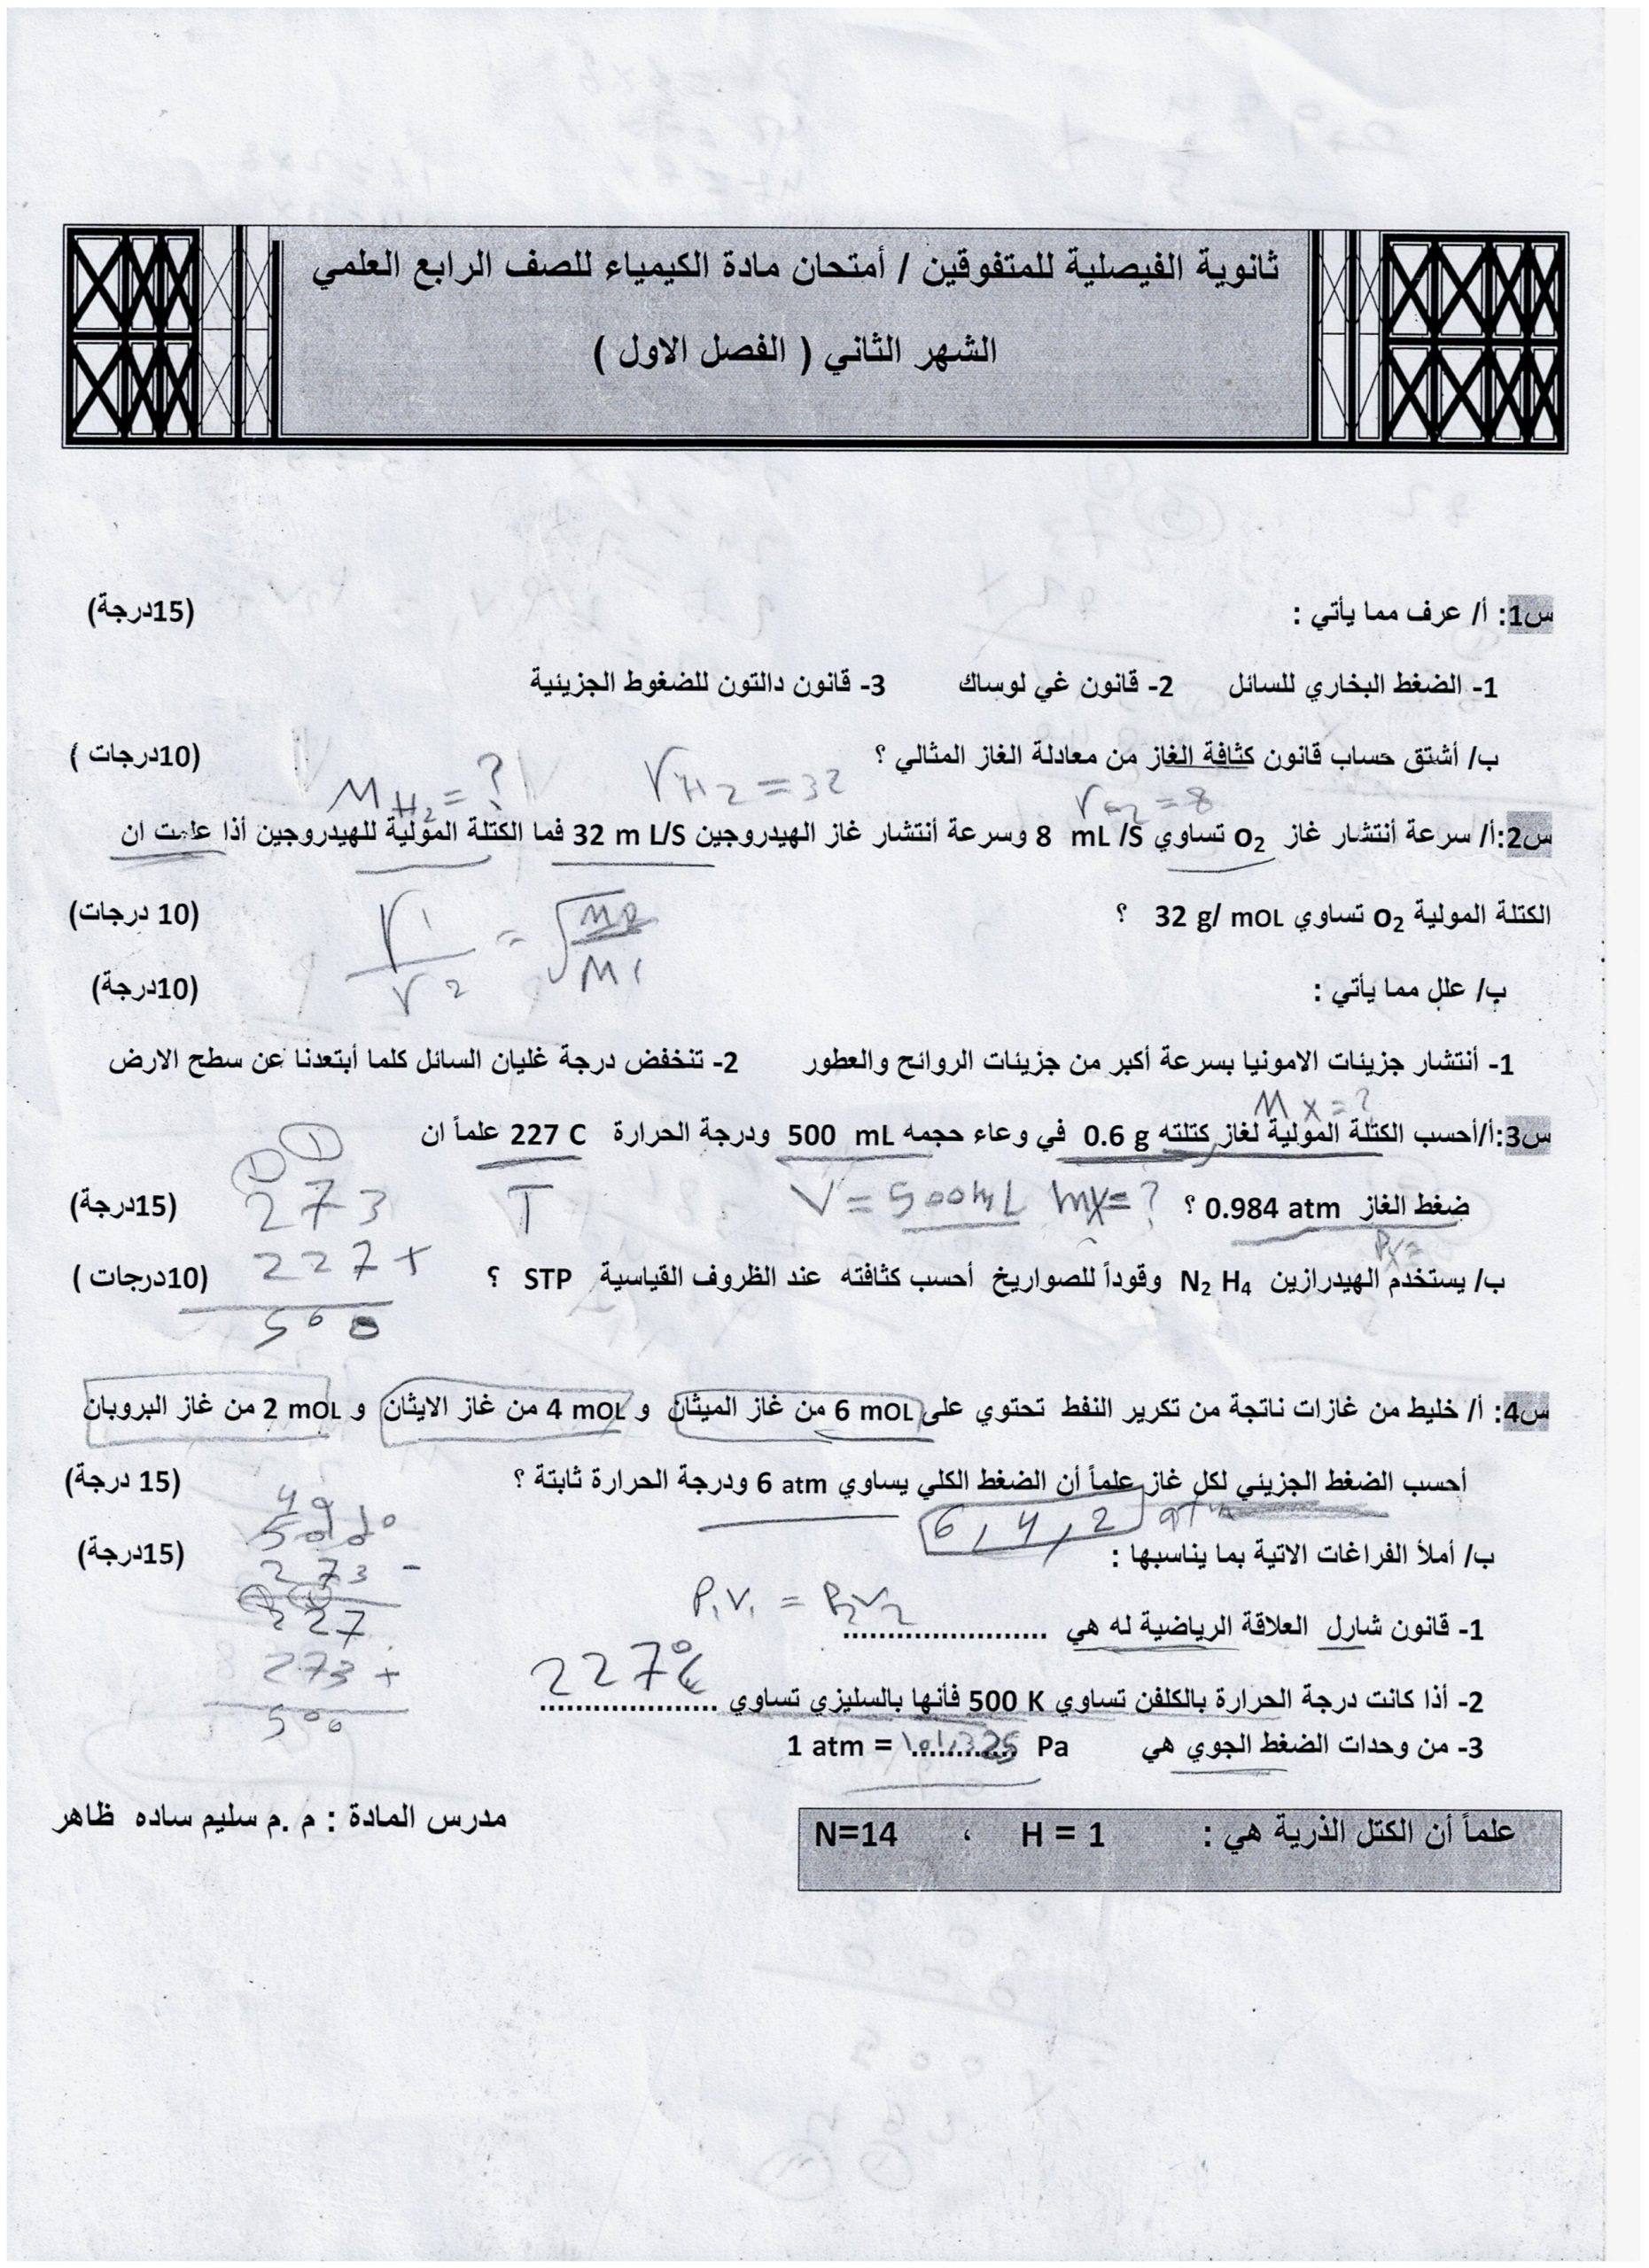 ثانوية الفيصلية للمتفوقين / أمتحان مادة الكيمياء للصف الرابع العلمي
الشهر الثاني ( الفصل الاول )
س1: أ/ عرف مما يأتي : (15درجة)
1- الضغط البخاري للسائل 2- قانون غي لوساك 3- قانون دالتون للضغوط الجزيئية
ب/ أشتق حساب قانون كثافة الغاز من معادلة الغاز المثالي ؟ (10درجات )
M H2 = ? r H2 = 32 r O2 = 8
س2:أ/ سرعة أنتشار غاز O2 تساوي 8 mL /S وسرعة أنتشار غاز الهيدروجين 32 m L/S فما الكتلة المولية للهيدروجين أذا علمت ان
الكتلة المولية O2 تساوي 32 g/ mOL ؟ (10 درجات)
r1 / r2 = √ M2 / M1
ب/ علل مما يأتي : (10درجة)
1- أنتشار جزيئات الامونيا بسرعة أكبر من جزيئات الروائح والعطور 2- تنخفض درجة غليان السائل كلما أبتعدنا عن سطح الارض
M x = ?
س3:أ/أحسب الكتلة المولية لغاز كتلته 0.6 g في وعاء حجمه 500 mL ودرجة الحرارة 227 C علماً ان
1 1
ضغط الغاز 0.984 atm ؟ (15درجة)
mx= ? V = 500mL T 273
Px=
227 +
ب/ يستخدم الهيدرازين N2 H4 وقوداً للصواريخ أحسب كثافته عند الظروف القياسية STP ؟ (10درجات )
500
س4: أ/ خليط من غازات ناتجة من تكرير النفط تحتوي على 6 mOL من غاز الميثان و 4 mOL من غاز الايثان و 2 mOL من غاز البروبان
أحسب الضغط الجزيئي لكل غاز علماً أن الضغط الكلي يساوي 6 atm ودرجة الحرارة ثابتة ؟ (15 درجة)
6 , 4 , 2 atm
ب/ أملأ الفراغات الاتية بما يناسبها : (15درجة)
273 -
P1V1 = P2V2
227
1- قانون شارل العلاقة الرياضية له هي .......................
227°C
273 +
2- أذا كانت درجة الحرارة بالكلفن تساوي 500 K فأنها بالسليزي تساوي ....................
500
3- من وحدات الضغط الجوي هي 1 atm = 101325 Pa
علماً أن الكتل الذرية هي : H = 1 ، N=14
مدرس المادة : م .م سليم ساده ظاهر